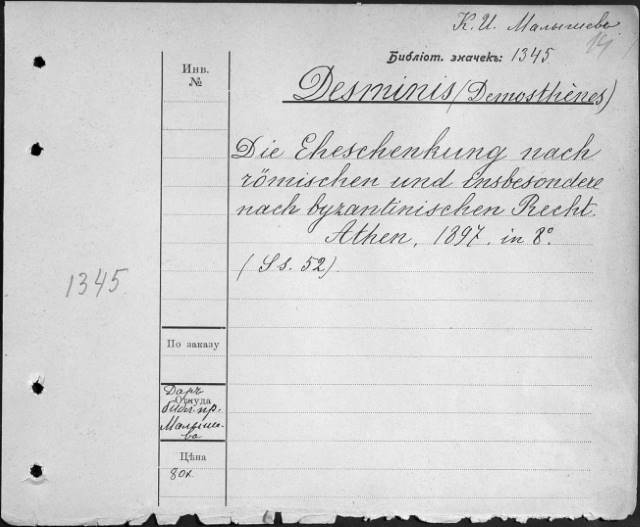 К. И. Малышева
14
Библіот. значекъ: 1345
Инв.
№
Desminis (Demosthènes)
Die Eheschenkung nach
römischen und insbesondere
nach byzantinischen Recht.
Athen, 1897. in 8°.
(Ss. 52).
1345
По заказу
Даръ
Откуда
библ. пр.
Малыше-
ва
Цѣна
80к.